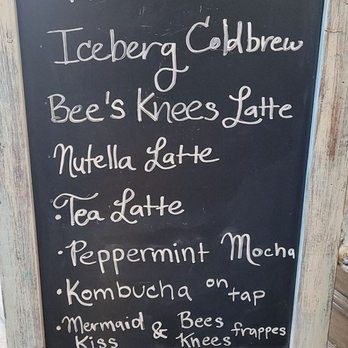 Iceberg Coldbrew
Bee's Knees Latte
Nutella Latte
·Tea Latte
·Peppermint Mocha
·Kombucha on tap
·Mermaid Kiss & Bees Knees frappes